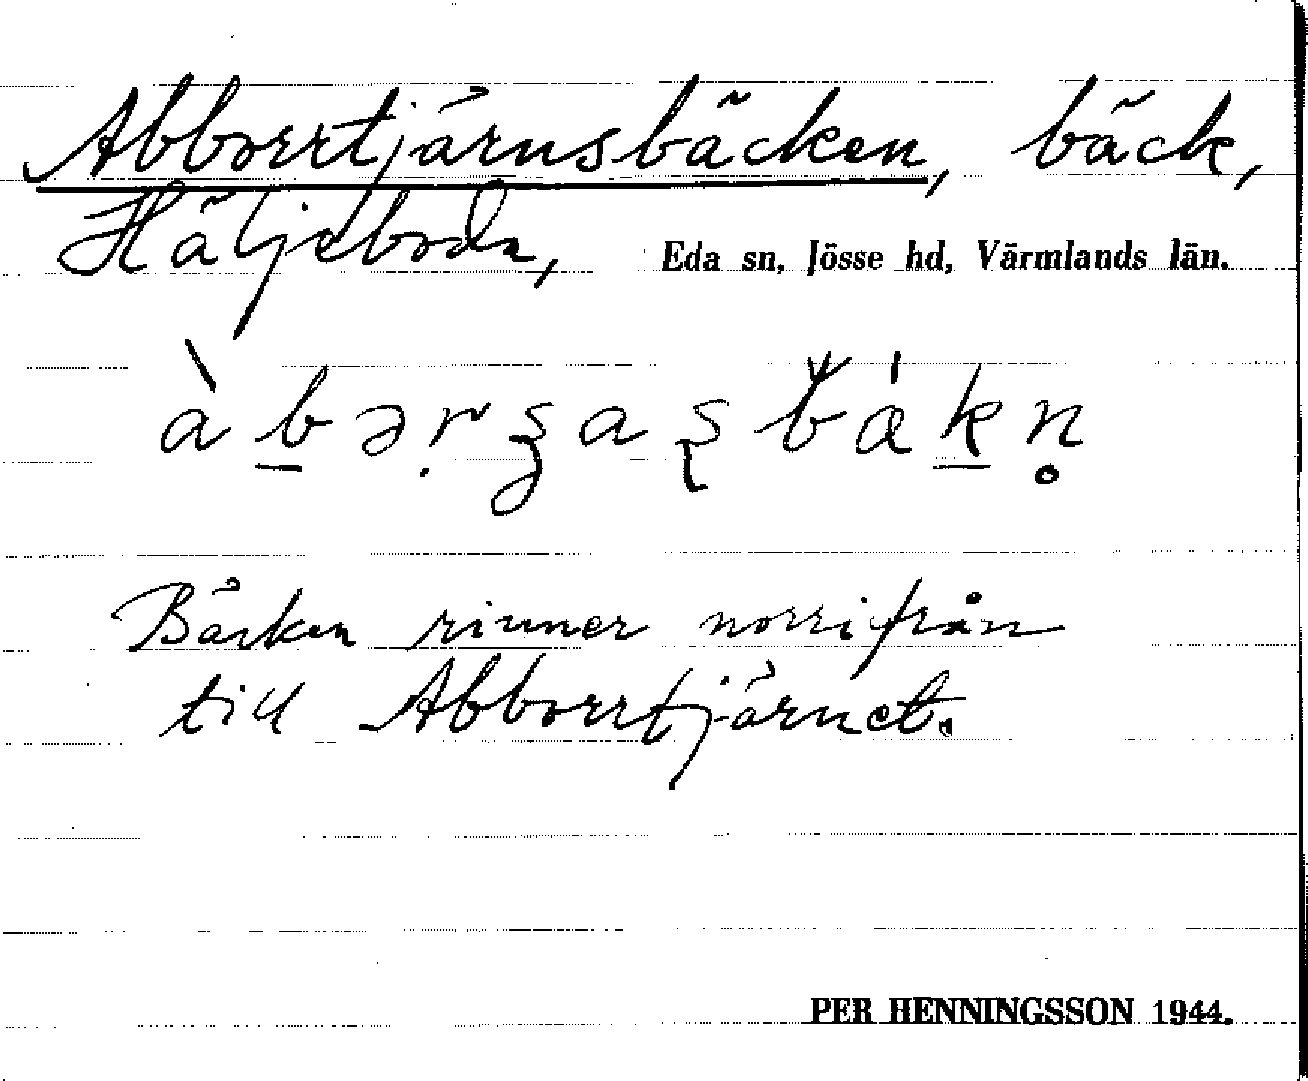 Abborrtjärnsbäcken, bäck,
Häljeboda, Eda sn, Jösse hd, Värmlands län.
Bäcken rinner norrifrån
till Abborrtjärnet.
PER HENNINGSSON 1944.